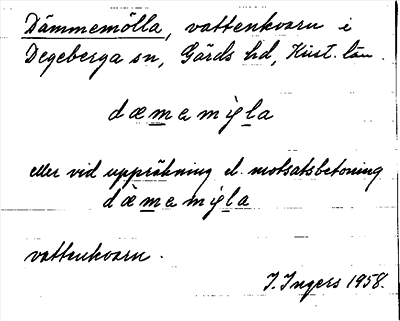 Dämmemölla, vattenkvarn i
Degeberga sn, Gärds hd, Krist. län.
dæmemỳla
eller vid uppräkning el. motsatsbetoning
dæ̀memỳla
vattenkvarn.
I. Ingers 1958.